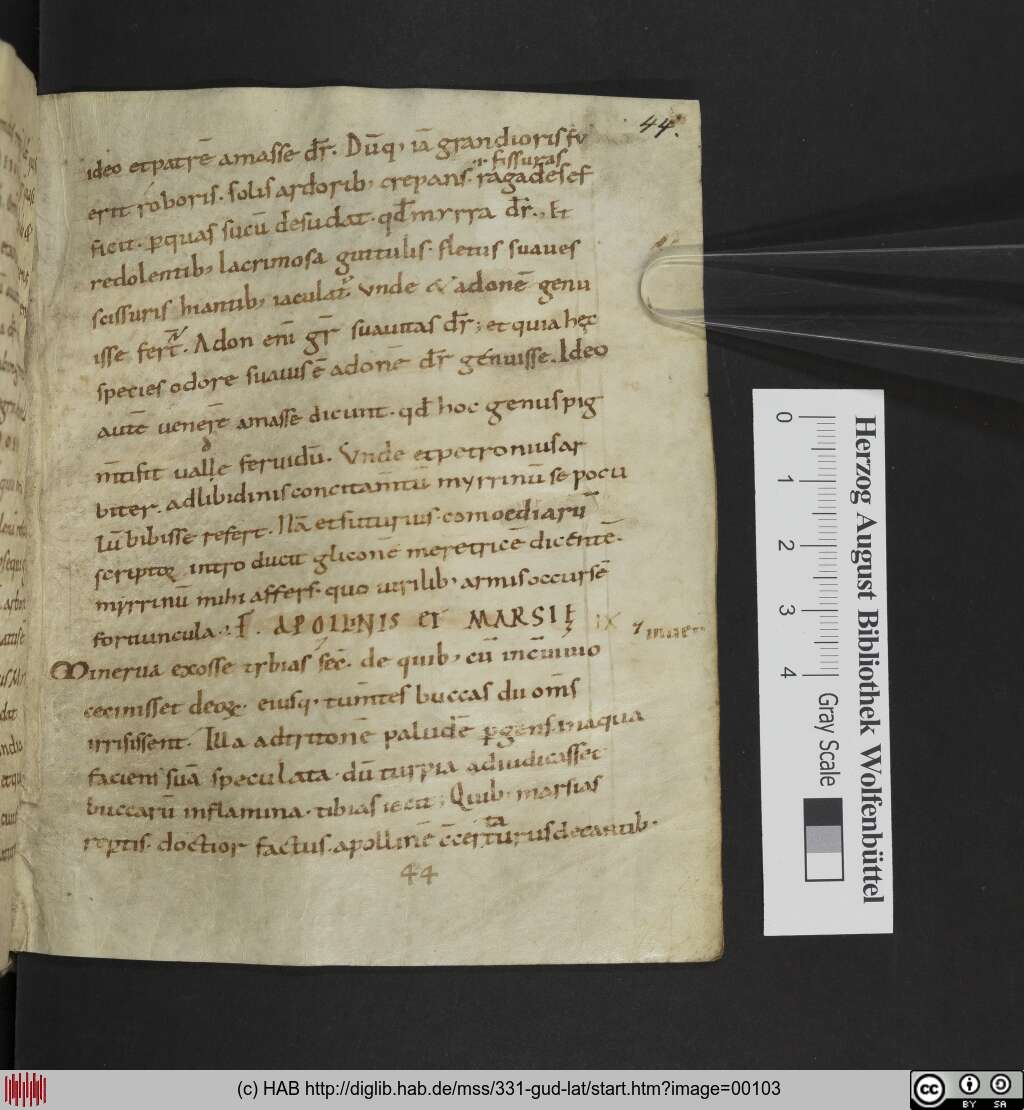 44.
ideo et patrē amasse dr̄. Dūq; iā grandioris fu
i. fissuras
erit roboris. solis ardorib; crepans. ragades ef
ficit. ꝑquas sucū desudat. qđ myrra dr̄. Et
redolentib; lacrimosa guttulis. fletus suaues
scissuris hiantib; iaculat᷑. Vnde & adonē genu
isse fert᷑. Adon eni gr̄ suauitas dr̄; et quia hęc
species odore suauis ē adonē dr̄ genuisse. Ideo
autē uenerē amasse dicunt. qđ hoc genus pig
m̄ti sit ualde feruidū. Vnde et petronius ar
biter. ad libidinis concitam̄tū myrrinū se pocu
lū bibisse refert. Nā et sutrius comoediarū
scriptor introducit gliconē meretricē dicentē.
myrrinū mihi affers. quo uirilib; armis occursē
fortuncula. F. APOLLINIS ET MARSIĘ IX
Minerua ex osse tybias fec̄. de quib; cū in c̄uiuio
cecinisset deoꝝ. eiusq; tum̄tes buccas dii om̄s
irrisissent. Illa ad tritonē paludē ꝑgens. in aqua
faciem suā speculata. dū turpia adiudicasset
buccarū inflamina. tibias iecit; Quib; marsias
reꝑtis. doctior factus. apollinē c̄certaturus de cantib;
44
Herzog August Bibliothek Wolfenbüttel
0 1 2 3 4
Gray Scale
(c) HAB http://diglib.hab.de/mss/331-gud-lat/start.htm?image=00103
cc BY SA